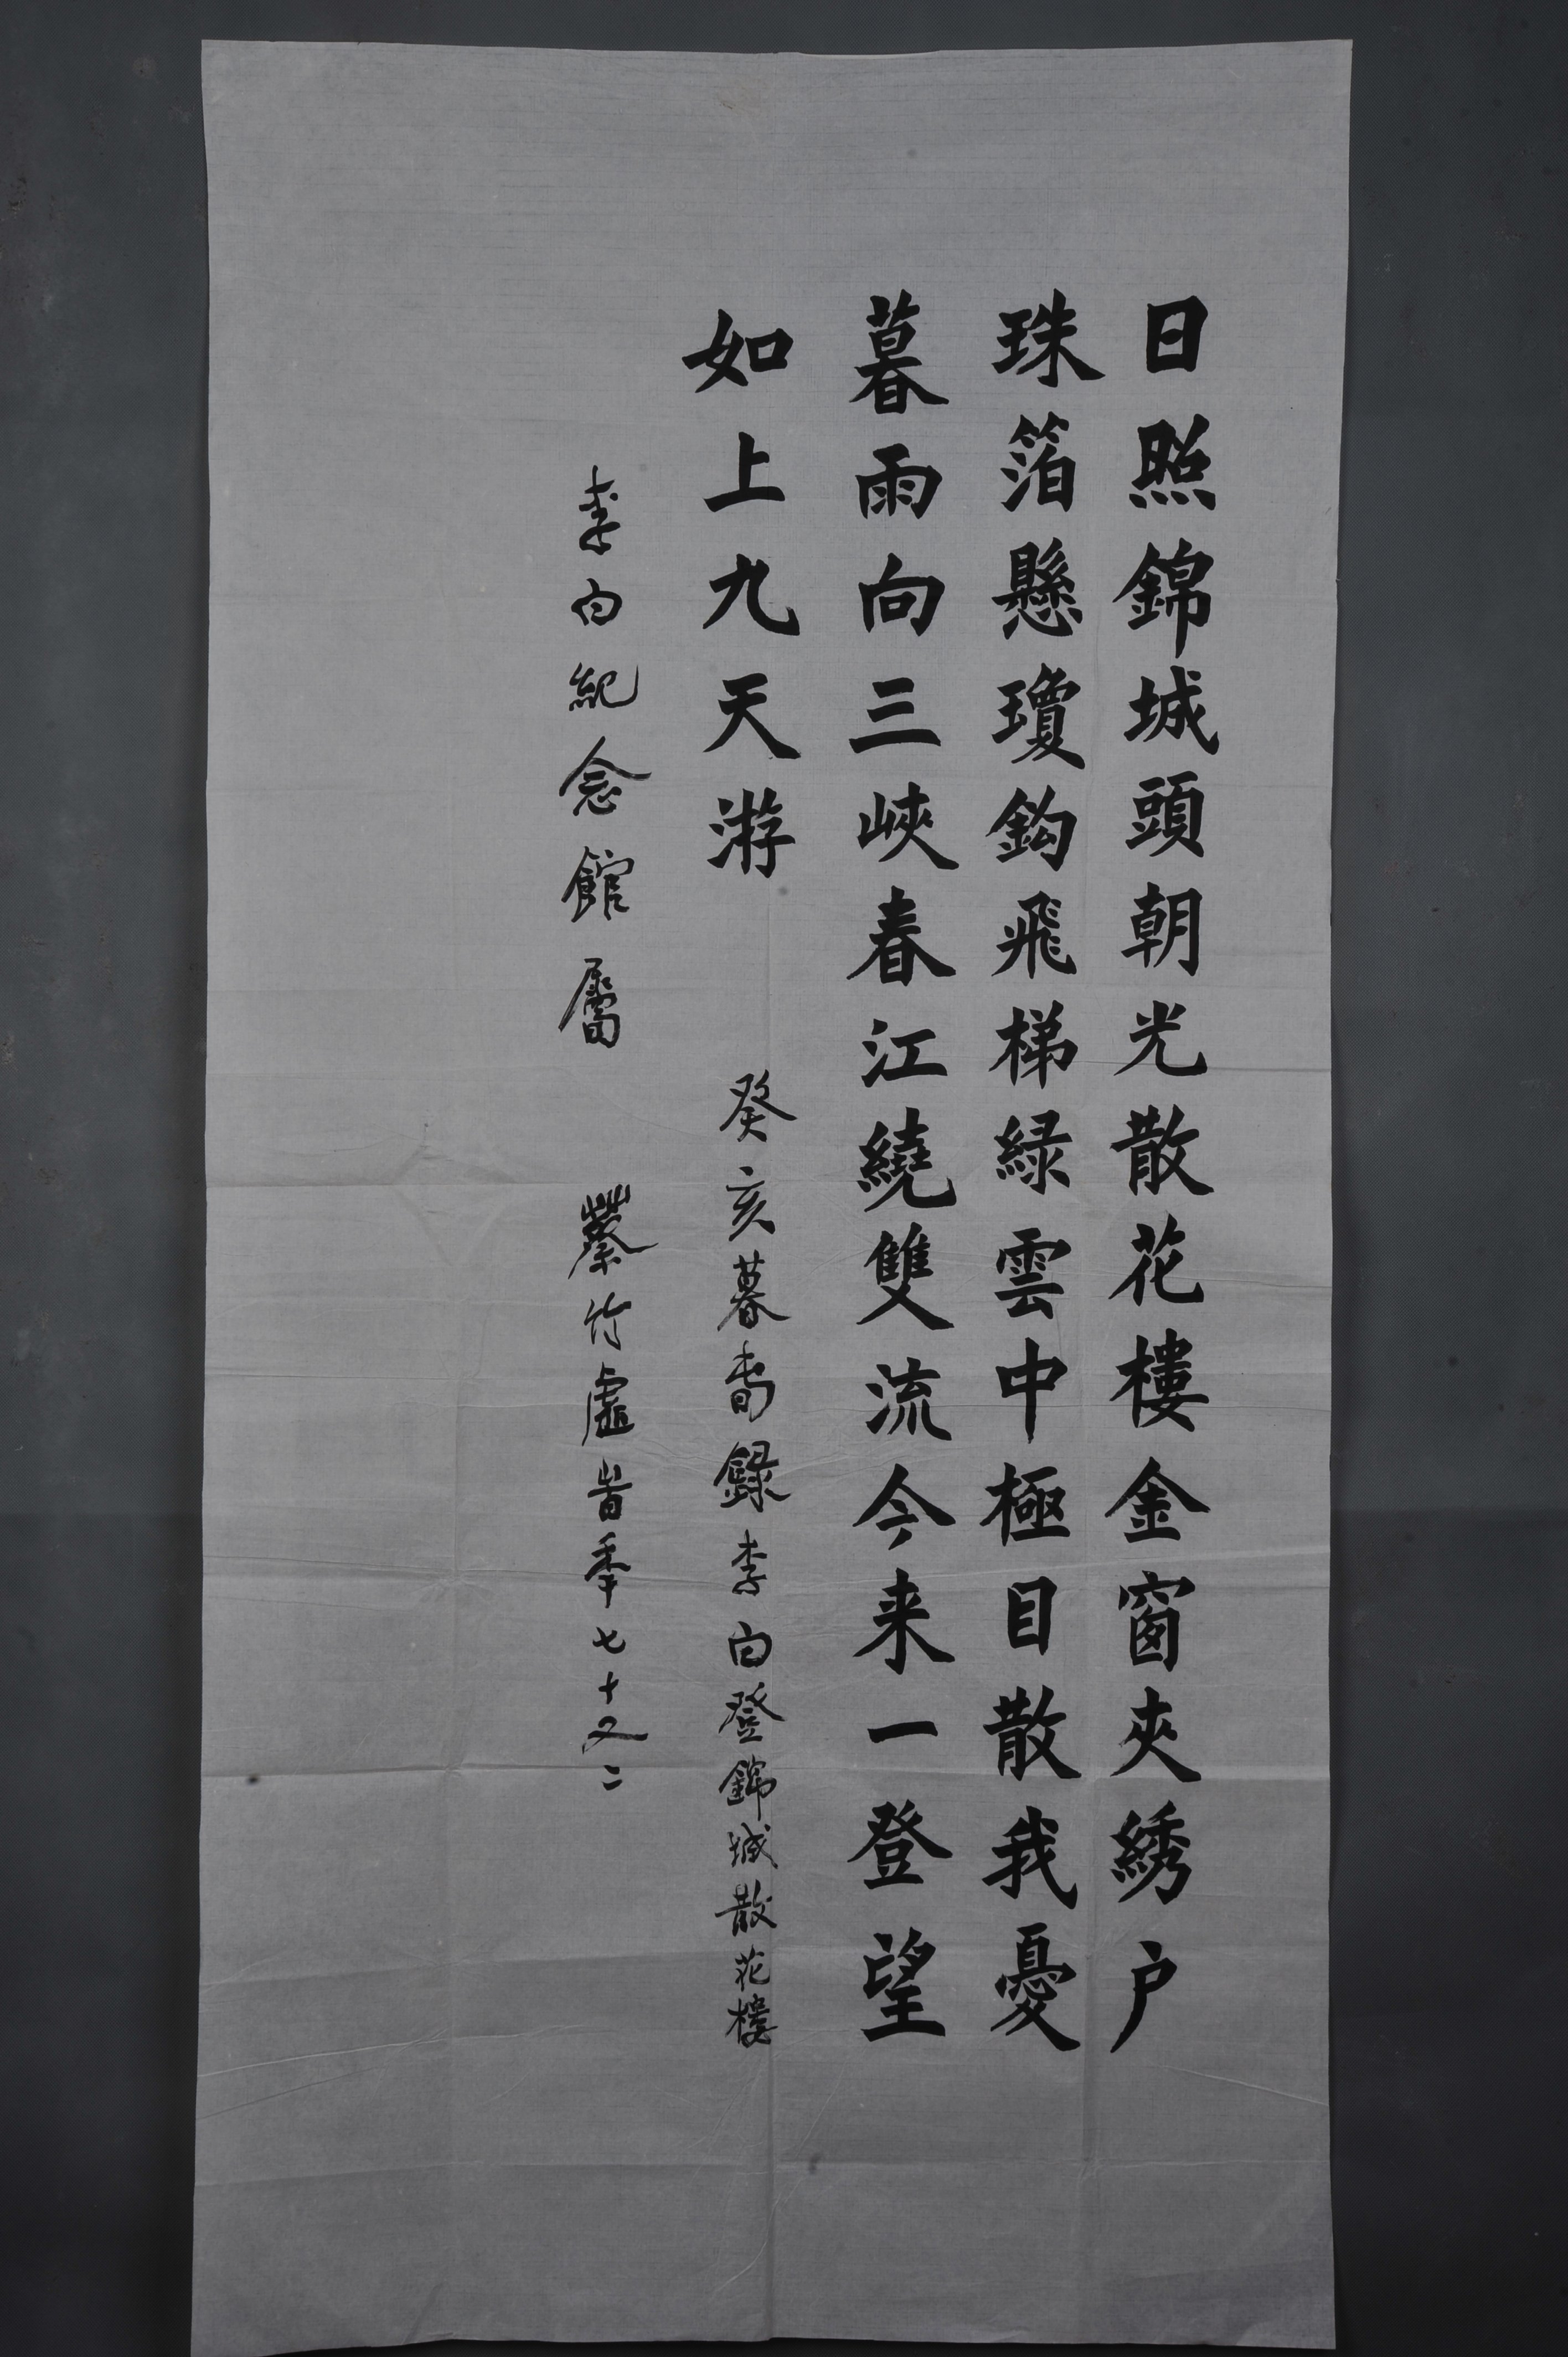 日照錦城頭朝光散花樓金窗夾綉户
珠箔懸瓊鈎飛梯緑雲中極目散我憂
暮雨向三峽春江繞雙流今来一登望
如上九天游
癸亥暮旾録李白登錦城散花樓
李白紀念館屬
蔡竹虚旹季七十又二